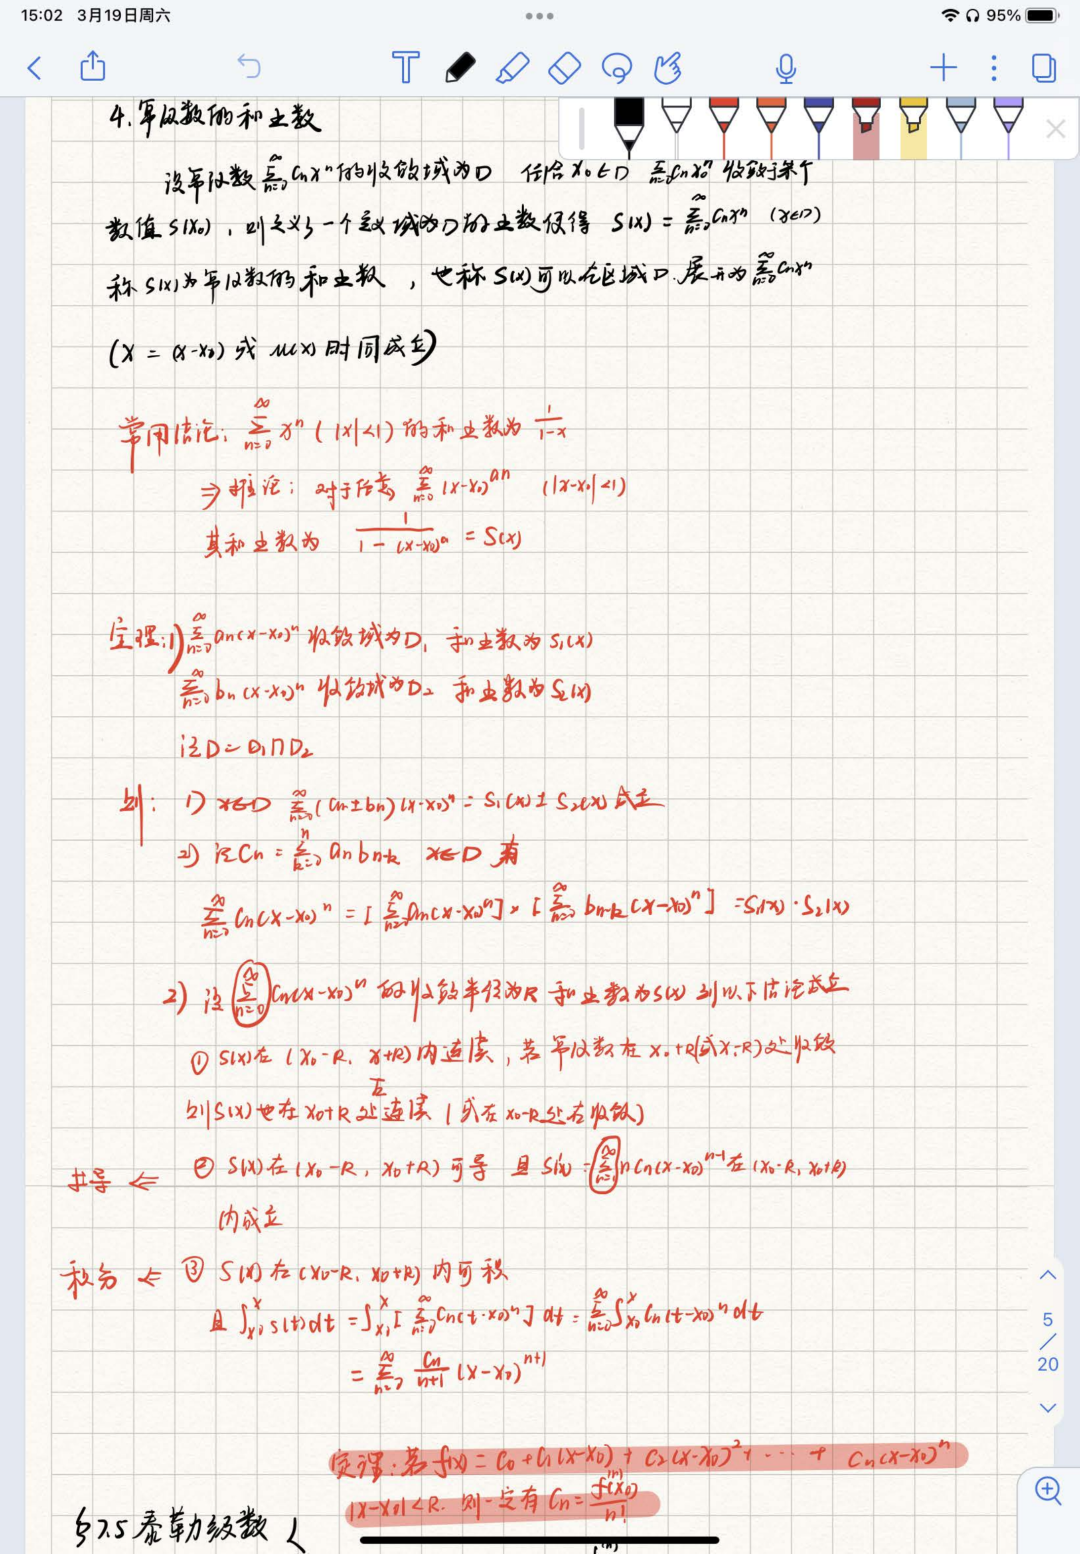 15:02 3月19日周六
95%
4.幂级数的和函数
设幂级数 $\sum_{n=0}^{\infty} C_n x^n$ 的收敛域为D 任给 $x_0 \in D$ $\sum_{n=0}^{\infty} C_n x_0^n$ 收敛于某个
数值 $S(x_0)$,则定义了一个定义域为D的函数使得 $S(x) = \sum_{n=0}^{\infty} C_n x^n$ $(x \in D)$
称 S(x) 为幂级数的和函数,也称 S(x) 可以在区域D.展开为 $\sum_{n=0}^{\infty} C_n x^n$
(X = (x-x_0) 或 u(x) 时同成立)
常用结论: $\sum_{n=0}^{\infty} x^n$ ( |x|<1) 的和函数为 $\frac{1}{1-x}$
⇒ 推论: 对于任意 $\sum_{n=0}^{\infty} (x-x_0)^{an}$ (|x-x_0|<1)
其和函数为 $\frac{1}{1-(x-x_0)^a} = S(x)$
定理:1) $\sum_{n=0}^{\infty} a_n(x-x_0)^n$ 收敛域为 $D_1$ 和函数为 $S_1(x)$
$\sum_{n=0}^{\infty} b_n(x-x_0)^n$ 收敛域为 $D_2$ 和函数为 $S_2(x)$
记 $D = D_1 \cap D_2$
则: 1) $x \in D$ $\sum_{n=0}^{\infty} (a_n \pm b_n)(x-x_0)^n = S_1(x) \pm S_2(x)$ 成立
2) 记 $C_n = \sum_{k=0}^{n} a_n b_{n-k}$ $x \in D$ 有
$\sum_{n=0}^{\infty} C_n(x-x_0)^n = [\sum_{n=0}^{\infty} a_n(x-x_0)^n] \times [\sum_{n=0}^{\infty} b_{n-k}(x-x_0)^n] = S_1(x) \cdot S_2(x)$
2) 设 $\sum_{n=0}^{\infty} C_n(x-x_0)^n$ 的收敛半径为R 和函数为S(x) 则以下结论成立
① S(x)在 $(x_0-R, x+R)$ 内连续,若幂级数在 $x_0+R$(或 $x_0-R$)处收敛
则S(x)也在 $x_0+R$ 处左连续 (或在 $x_0-R$ 处右收敛)
求导 ⇐ ② S(x)在 $(x_0-R, x_0+R)$ 可导 且 $S'(x) = \sum_{n=1}^{\infty} n C_n(x-x_0)^{n-1}$ 在 $(x_0-R, x_0+R)$
内成立
积分 ⇐ ③ S(x)在 $(x_0-R, x_0+R)$ 内可积
且 $\int_{x_0}^{x} s(t)dt = \int_{x_0}^{x} [\sum_{n=0}^{\infty} C_n(t-x_0)^n] dt = \sum_{n=0}^{\infty} \int_{x_0}^{x} C_n(t-x_0)^n dt$
$= \sum_{n=0}^{\infty} \frac{C_n}{n+1} (x-x_0)^{n+1}$
5
/
20
定理:若 $f(x) = C_0 + C_1(x-x_0) + C_2(x-x_0)^2 + \cdots + C_n(x-x_0)^n$
$|x-x_0|<R.$ 则一定有 $C_n = \frac{f^{(n)}(x_0)}{n!}$
§7.5 泰勒级数